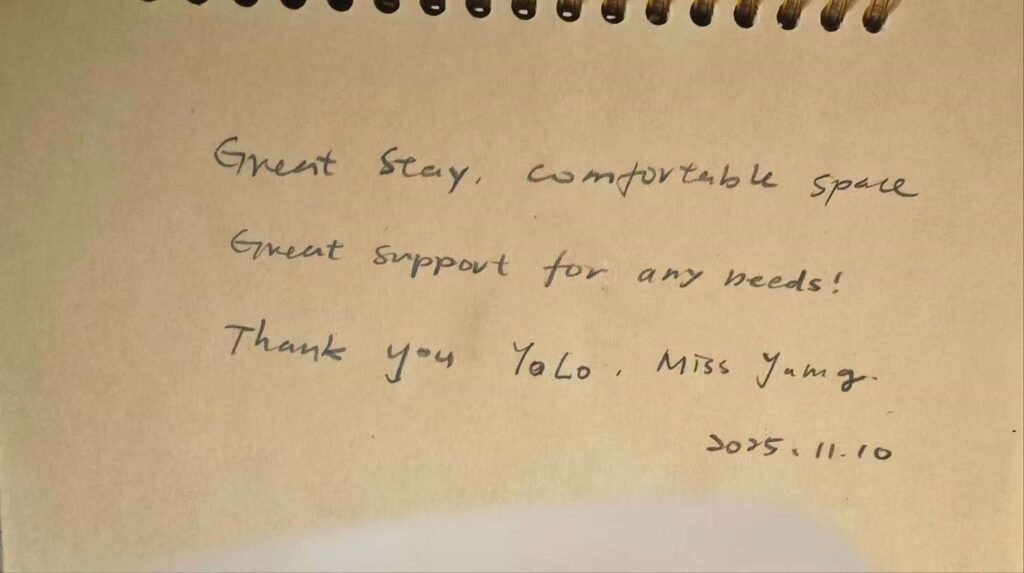 Great stay, comfortable space
Great support for any needs!
Thank you YoLo, Miss Yang.
2025.11.10